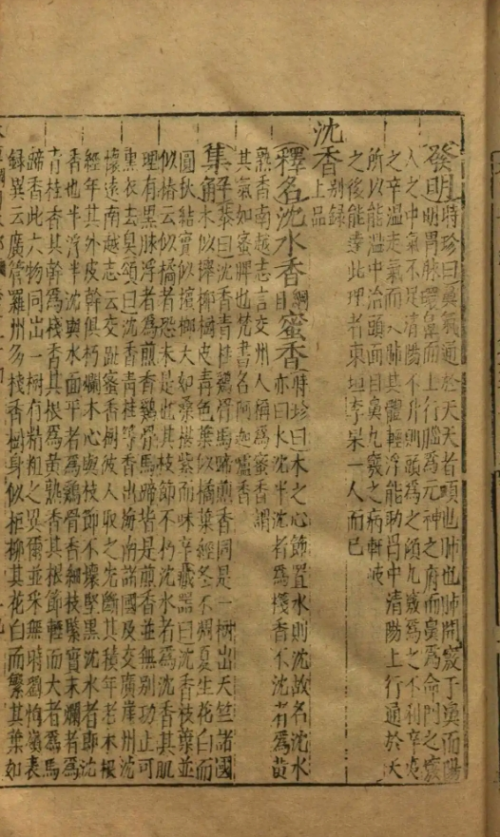 發明時珍曰鼻氣通於天天者頭也肺也肺開竅于鼻而陽
明胃脉環鼻而上行腦為元神之府而鼻為命門之竅
人之中氣不足清陽不升則頭為之傾九竅為之不利辛夷
之辛溫走氣而入肺其體輕浮能助胃中清陽上行通於天
所以能溫中治頭面目鼻九竅之病軒岐
之後能達此理者東垣李杲一人而已
沈香別錄上品
釋名沈水香綱目蜜香時珍曰木之心節置水則沈故名沈水
亦曰水沈半沈者為棧香不沈者為黃
熟香南越志言交州人稱為蜜香謂
其氣如蜜脾也梵書名阿迦嚧香
集解恭曰沈香青桂雞骨馬蹄煎香同是一樹出天竺諸國
木似櫸柳樹皮青色葉似橘葉經冬不凋夏生花白而
圓秋結實似檳榔大如桑椹紫而味辛藏器曰沈香枝葉並
似椿云似橘者恐未是也其枝節不朽沈水者為沈香其肌
理有黑脉浮者為煎香雞骨馬蹄皆是煎香並無別功止可
熏衣去臭頌曰沈香青桂等香出海南諸國及交廣崖州沈
懷遠南越志云交趾蜜香樹彼人取之先斷其積年老木根
經年其外皮幹俱朽爛木心與枝節不壞堅黑沈水者即沈
香也半浮半沈與水面平者為雞骨香細枝緊實未爛者為
青桂香其幹為棧香其根為黃熟香其根節輕而大者為馬
蹄香此六物同出一樹有精粗之異爾並采無時劉恂嶺表
録異云廣管羅州多棧香樹身似柜柳其花白而繁其葉如